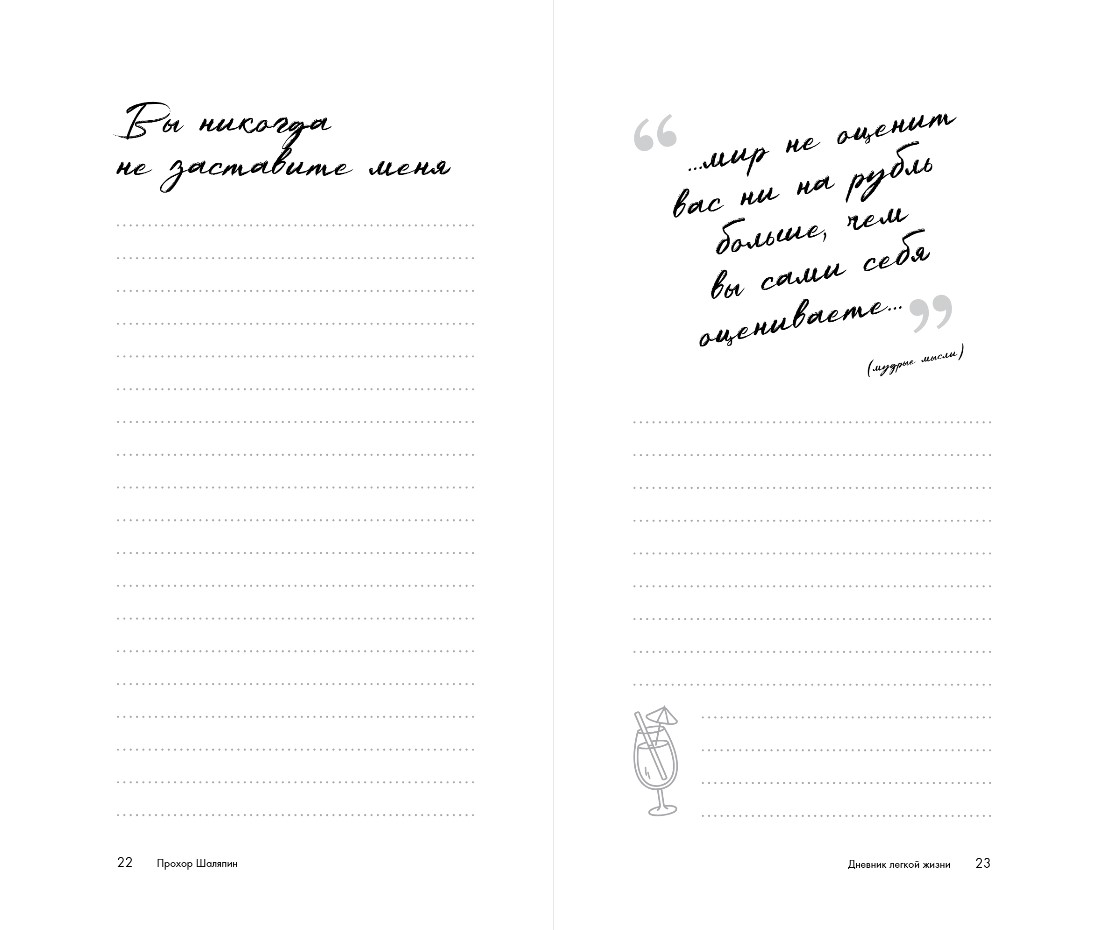 Вы никогда
не заставите меня
22 Прохор Шаляпин
“ ...мир не оценит
вас ни на рубль
больше, чем
вы сами себя
оцениваете... ”
(мудрые мысли)
Дневник легкой жизни 23